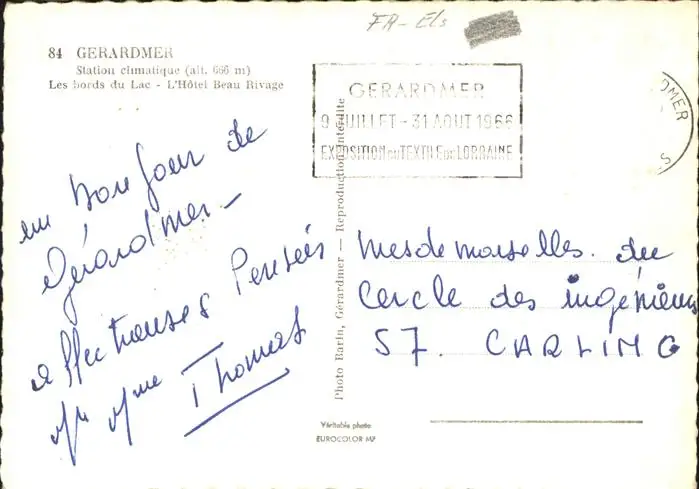 FR-Els
84 GERARDMER
Station climatique (alt. 666 m)
Les bords du Lac - L'Hôtel Beau Rivage
GERARDMER
9 JUILLET-31 AOUT 1966
EXPOSITION DU TEXTILE DE LORRAINE
un bonjour de
Gérardmer -
affectueuses Pensées
Mme Thomas
Photo Barin, Gérardmer — Reproduction interdite
Mesdemoiselles du
Cercle des ingénieurs
57. CARLING
Véritable photo
EUROCOLOR MP